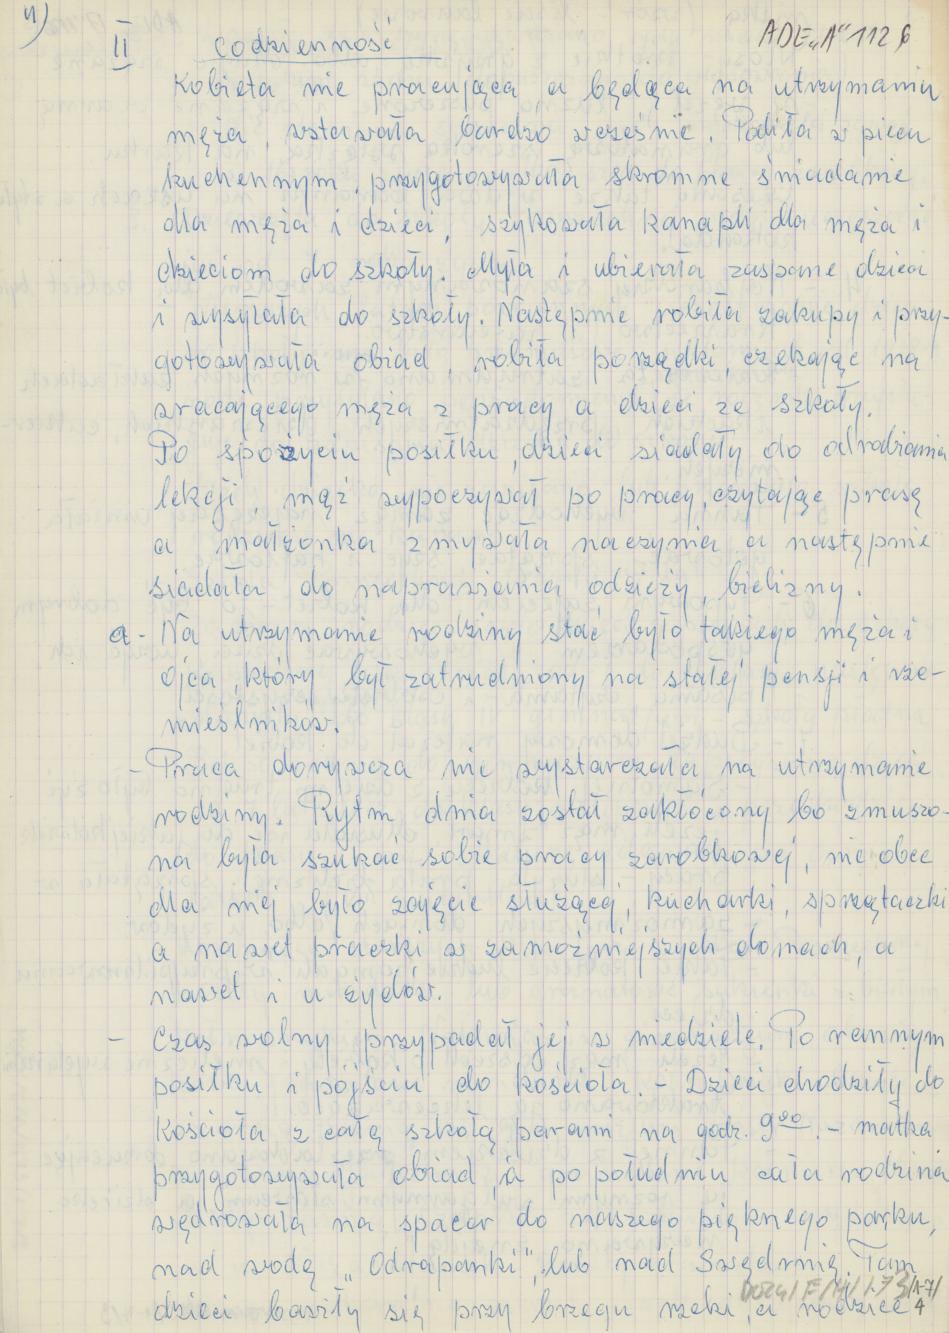 4)
ADE „A" 112 6
II codzienność
Kobieta nie pracująca, a będąca na utrzymaniu
męża, wstawała bardzo wcześnie. Paliła w piecu
kuchennym, przygotowywała skromne śniadanie
dla męża i dzieci, szykowała kanapki dla męża i
dzieciom do szkoły. Myła i ubierała zaspane dzieci
i wysyłała do szkoły. Następnie robiła zakupy i przy-
gotowywała obiad, robiła porządki, czekając na
wracającego męża z pracy a dzieci ze szkoły.
Po spożyciu posiłku, dzieci siadały do odrabiania
lekcji, mąż wypoczywał po pracy, czytając prasę
a małżonka zmywała naczynia a następnie
siadała do naprawiania odzieży, bielizny.
a - Na utrzymanie rodziny stać było takiego męża i
ojca, który był zatrudniony na stałej pensji i rze-
mieślników.
- Praca dorywcza nie wystarczała na utrzymanie
rodziny. Rytm dnia został zakłócony bo zmuszo-
na była szukać sobie pracy zarobkowej, nie obce
dla niej było zajęcie służącej, kucharki, sprzątaczki
a nawet praczki w zamożniejszych domach, a
nawet i u żydów.
- Czas wolny przypadał jej w niedziele. Po rannym
posiłku i pójściu do kościoła. - Dzieci chodziły do
Kościoła z całą szkołą parami na godz. 9⁰⁰. - matka
przygotowywała obiad, a po południu cała rodzina
wędrowała na spacer do naszego pięknego parku,
nad wodę „Odrapanki", lub nad Swędrnię. Tam
dzieci bawiły się przy brzegu rzeki, a rodzice
4